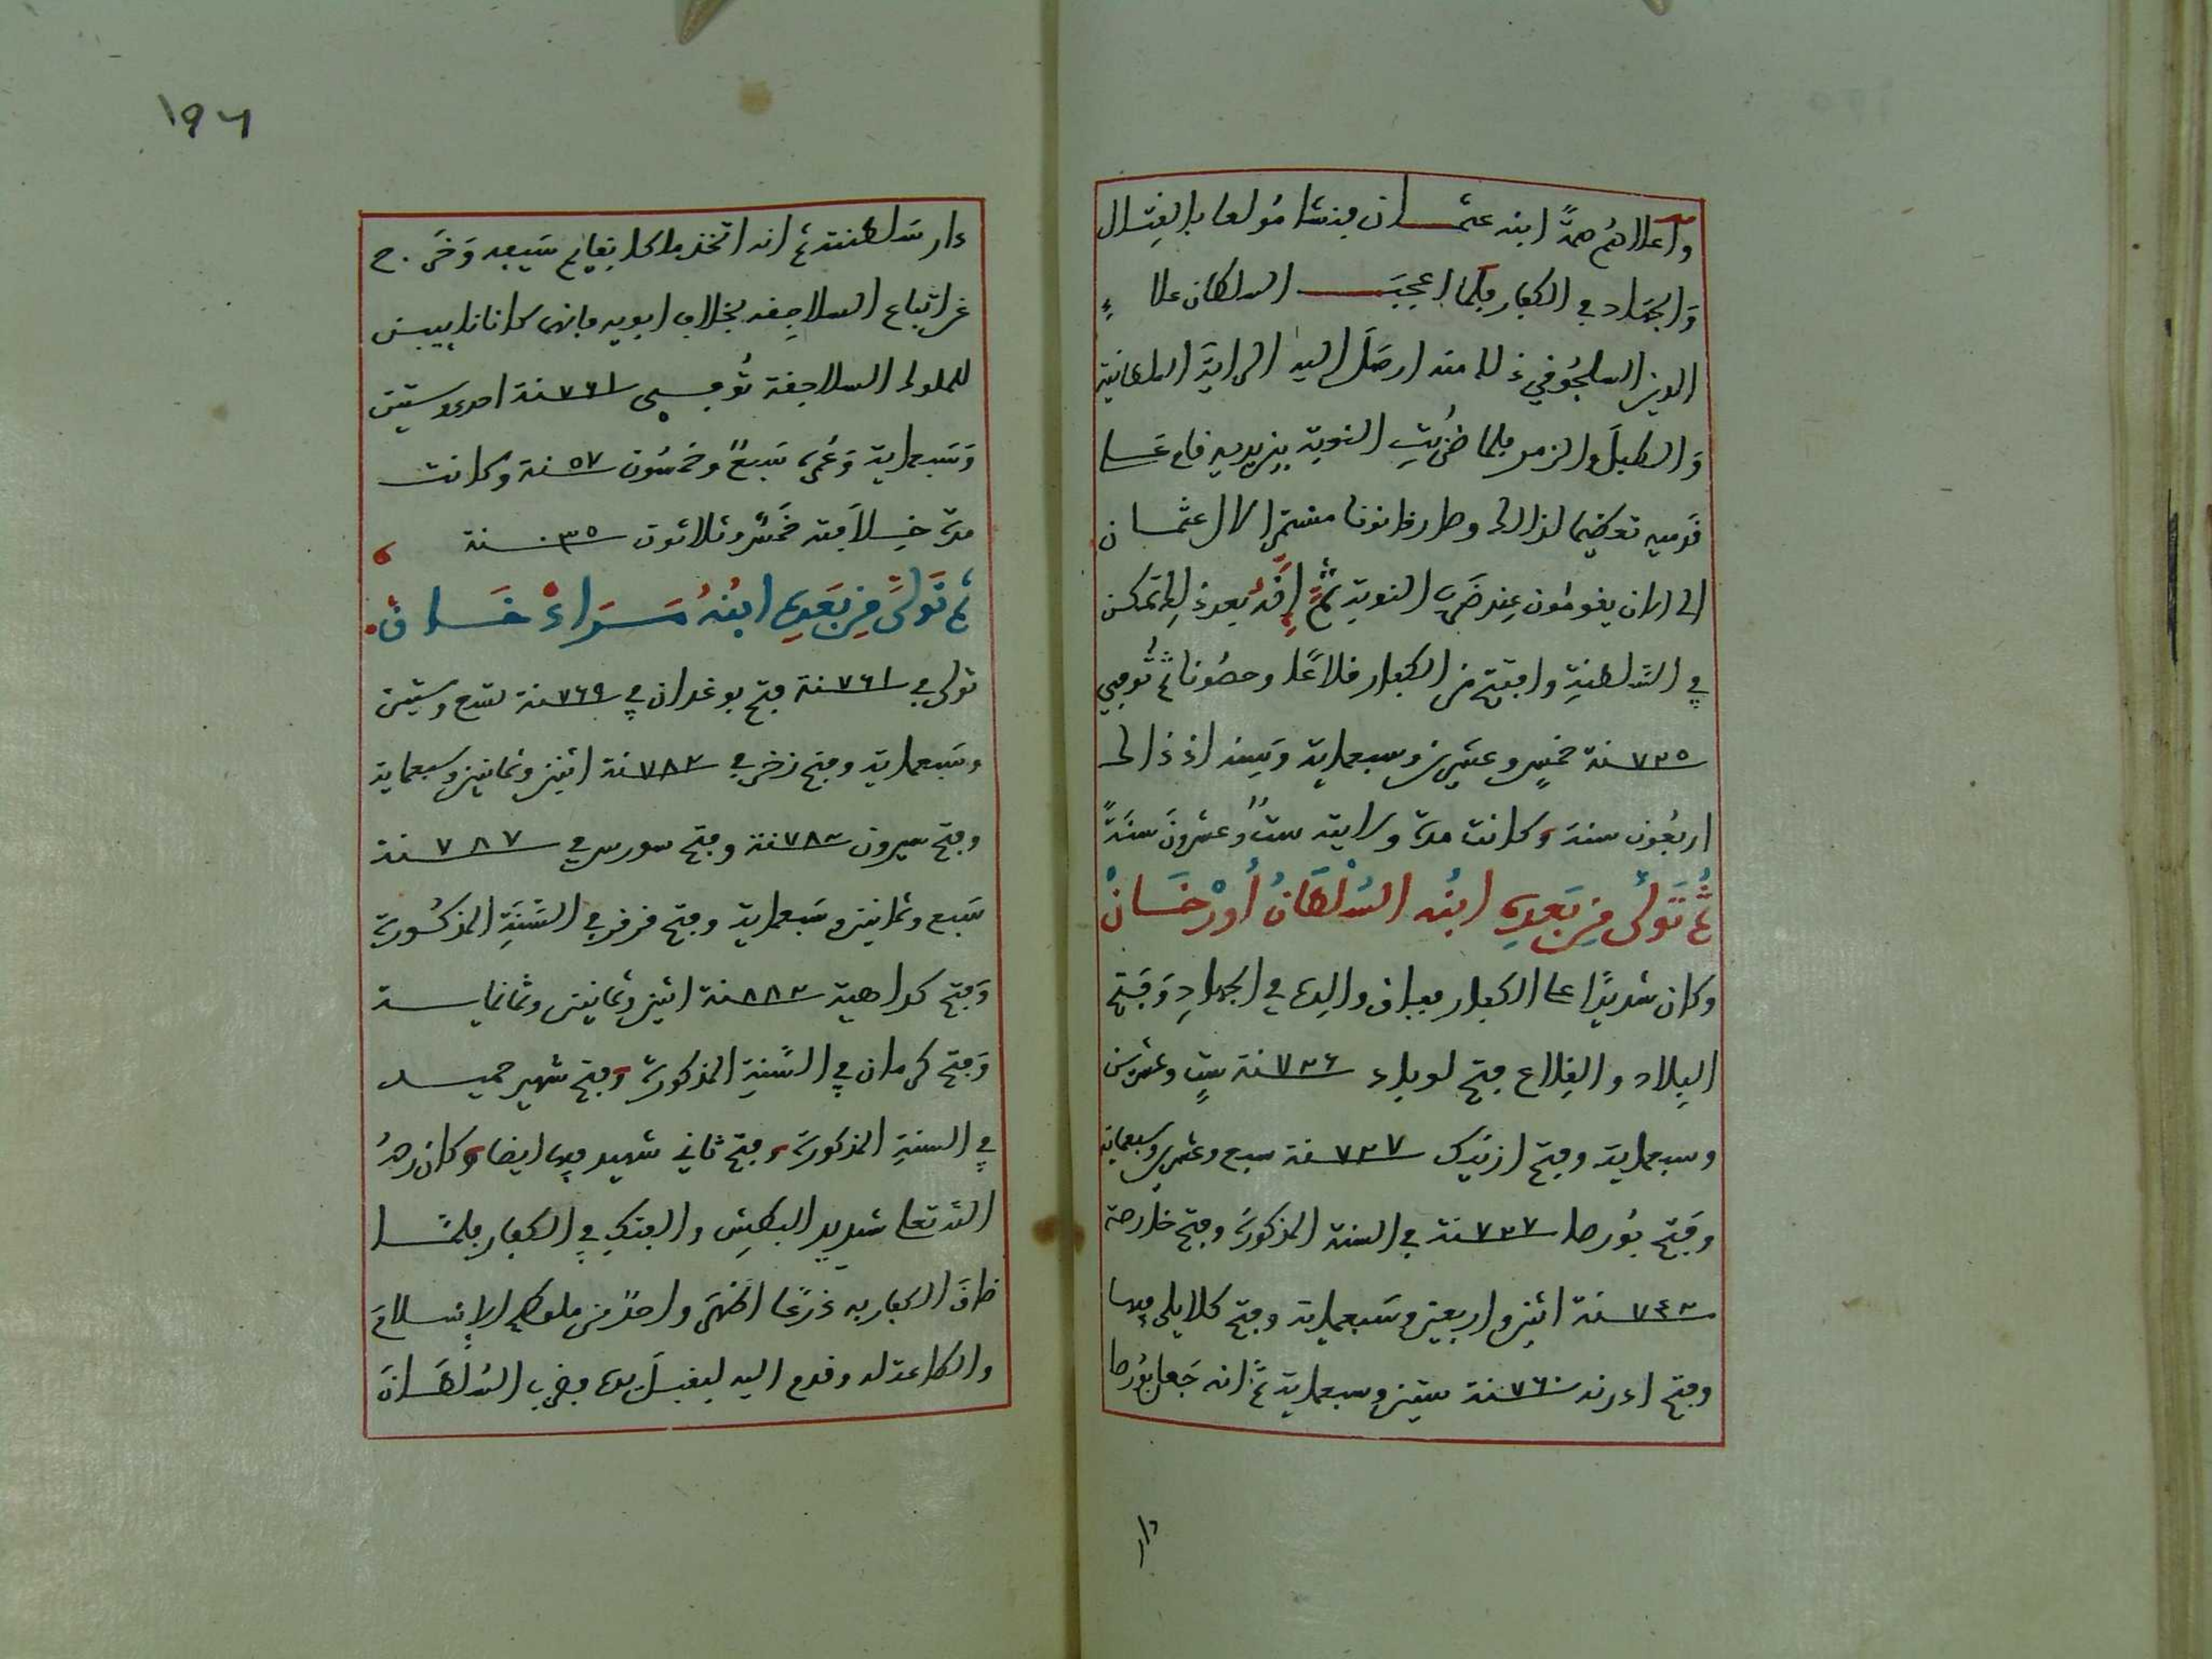 وأعلاهُم همةً ابنه عثمــان فنشا مُولعا بالقِتال
وَالجهَاد في الكفار فلما اعجبَــ السلطان علا ء
الدين السلجُوقي ذلك منه ارصَل اليه الرايَة السلطانية
وَالطبلَ والزمر فلما ضُرِبَتِ النوبة بين يديه قام عَــلى
قدميه تعظيما لذالك وصار قانونا مستمرا لال عثمــان
الى الان يقومُون عِند ضَرب النوبة ثُمَّ إنَّه بعد ذلك تمكن
في السَّلطنةِ وافتتح من الكفار قلاعًا وحصُونا ثم تُوفي
٧٢٥ سنة خمسٍ وعشرين وسبعماية وَسِنه اذ ذالك
اربعُون سنة وكانت مدة ولايته ستٌ وعشرونَ سنَةً
ثُمَّ تَوَلَّى مِن بَعدِهِ ابنُه السُلْطَانُ أُورْخَــانْ
وكان شديدًا على الكفار ففاق والِده في الجهادِ وَفَتح
البِلاد والقِلاع فتح لوبلء ٧٢٦ سنة ستٍ وعشرين
وسبعماية وفتح ازنيك ٧٢٧ سنة سبع وعشرين وسبعماية
وفَتح بُورصا ٧٢٧ سنة في السنة المذكورة وفتح خلارصة
٧٤٢ سنة اثنين واربعين وسَبعماية وفتح كلايلى فيها
وفتح ادرنه ٧٦٠ سنة ستين وسبعماية ثمَّ انه جَعل بُورصا
دار
١٩٦
دار سَلطنته ثم انه اتخذ ما كل بقايم سَيفه وَخَرَج
عن اتباع السلاجقه بخلاف ابويه فانهما كانا نايبين
للملوك السلاجقة تُوفــى ٧٦١ سنة احدى وستين
وَسَبعماية وَعُمره سَبعٌ وخمسُون ٥٧ سنة وكانت
مدة خِــلاَفته خَمسٌ وثلاثون ٣٥ سنة
ثم تَوَلَّى مِن بَعَدِهِ ابنُهُ مَــرَادْ خَــان
تولى في ٧٦١ سنة فتح بوغدان في ٧٦٩ سنة تسع وستين
وسَبعماية وفتح زخرفي ٧٨٢ سنة اثنين وثمانين وسبعماية
وفتح سيرون ٧٨٢ سنة وفتح سورس في ٧٨٧ سنة
سَبع وثمانين وسَبعماية وفتح قرفر في السَّنَةِ المذكــورة
وَفتح كداهية ٨٨٢ سنة اثنين وثمانين وثمانمايــة
وَفتح كرمان في السَّنةِ المذكورة وفتح شهير حميــد
في السنةِ المذكورة وفتح ثاني شهير فيها ايضا وكان رحمهُ
الله تعلى شديد البطشِ والفتكِ في الكفار فلمّــا
ضاقَ الكفار به ذرعًا اظهرَ واحدٌ من ملوكهم الإســلامَ
والطاعة له وقدم اليه ليقبــلَ يده فضرب السُلطَــانَ